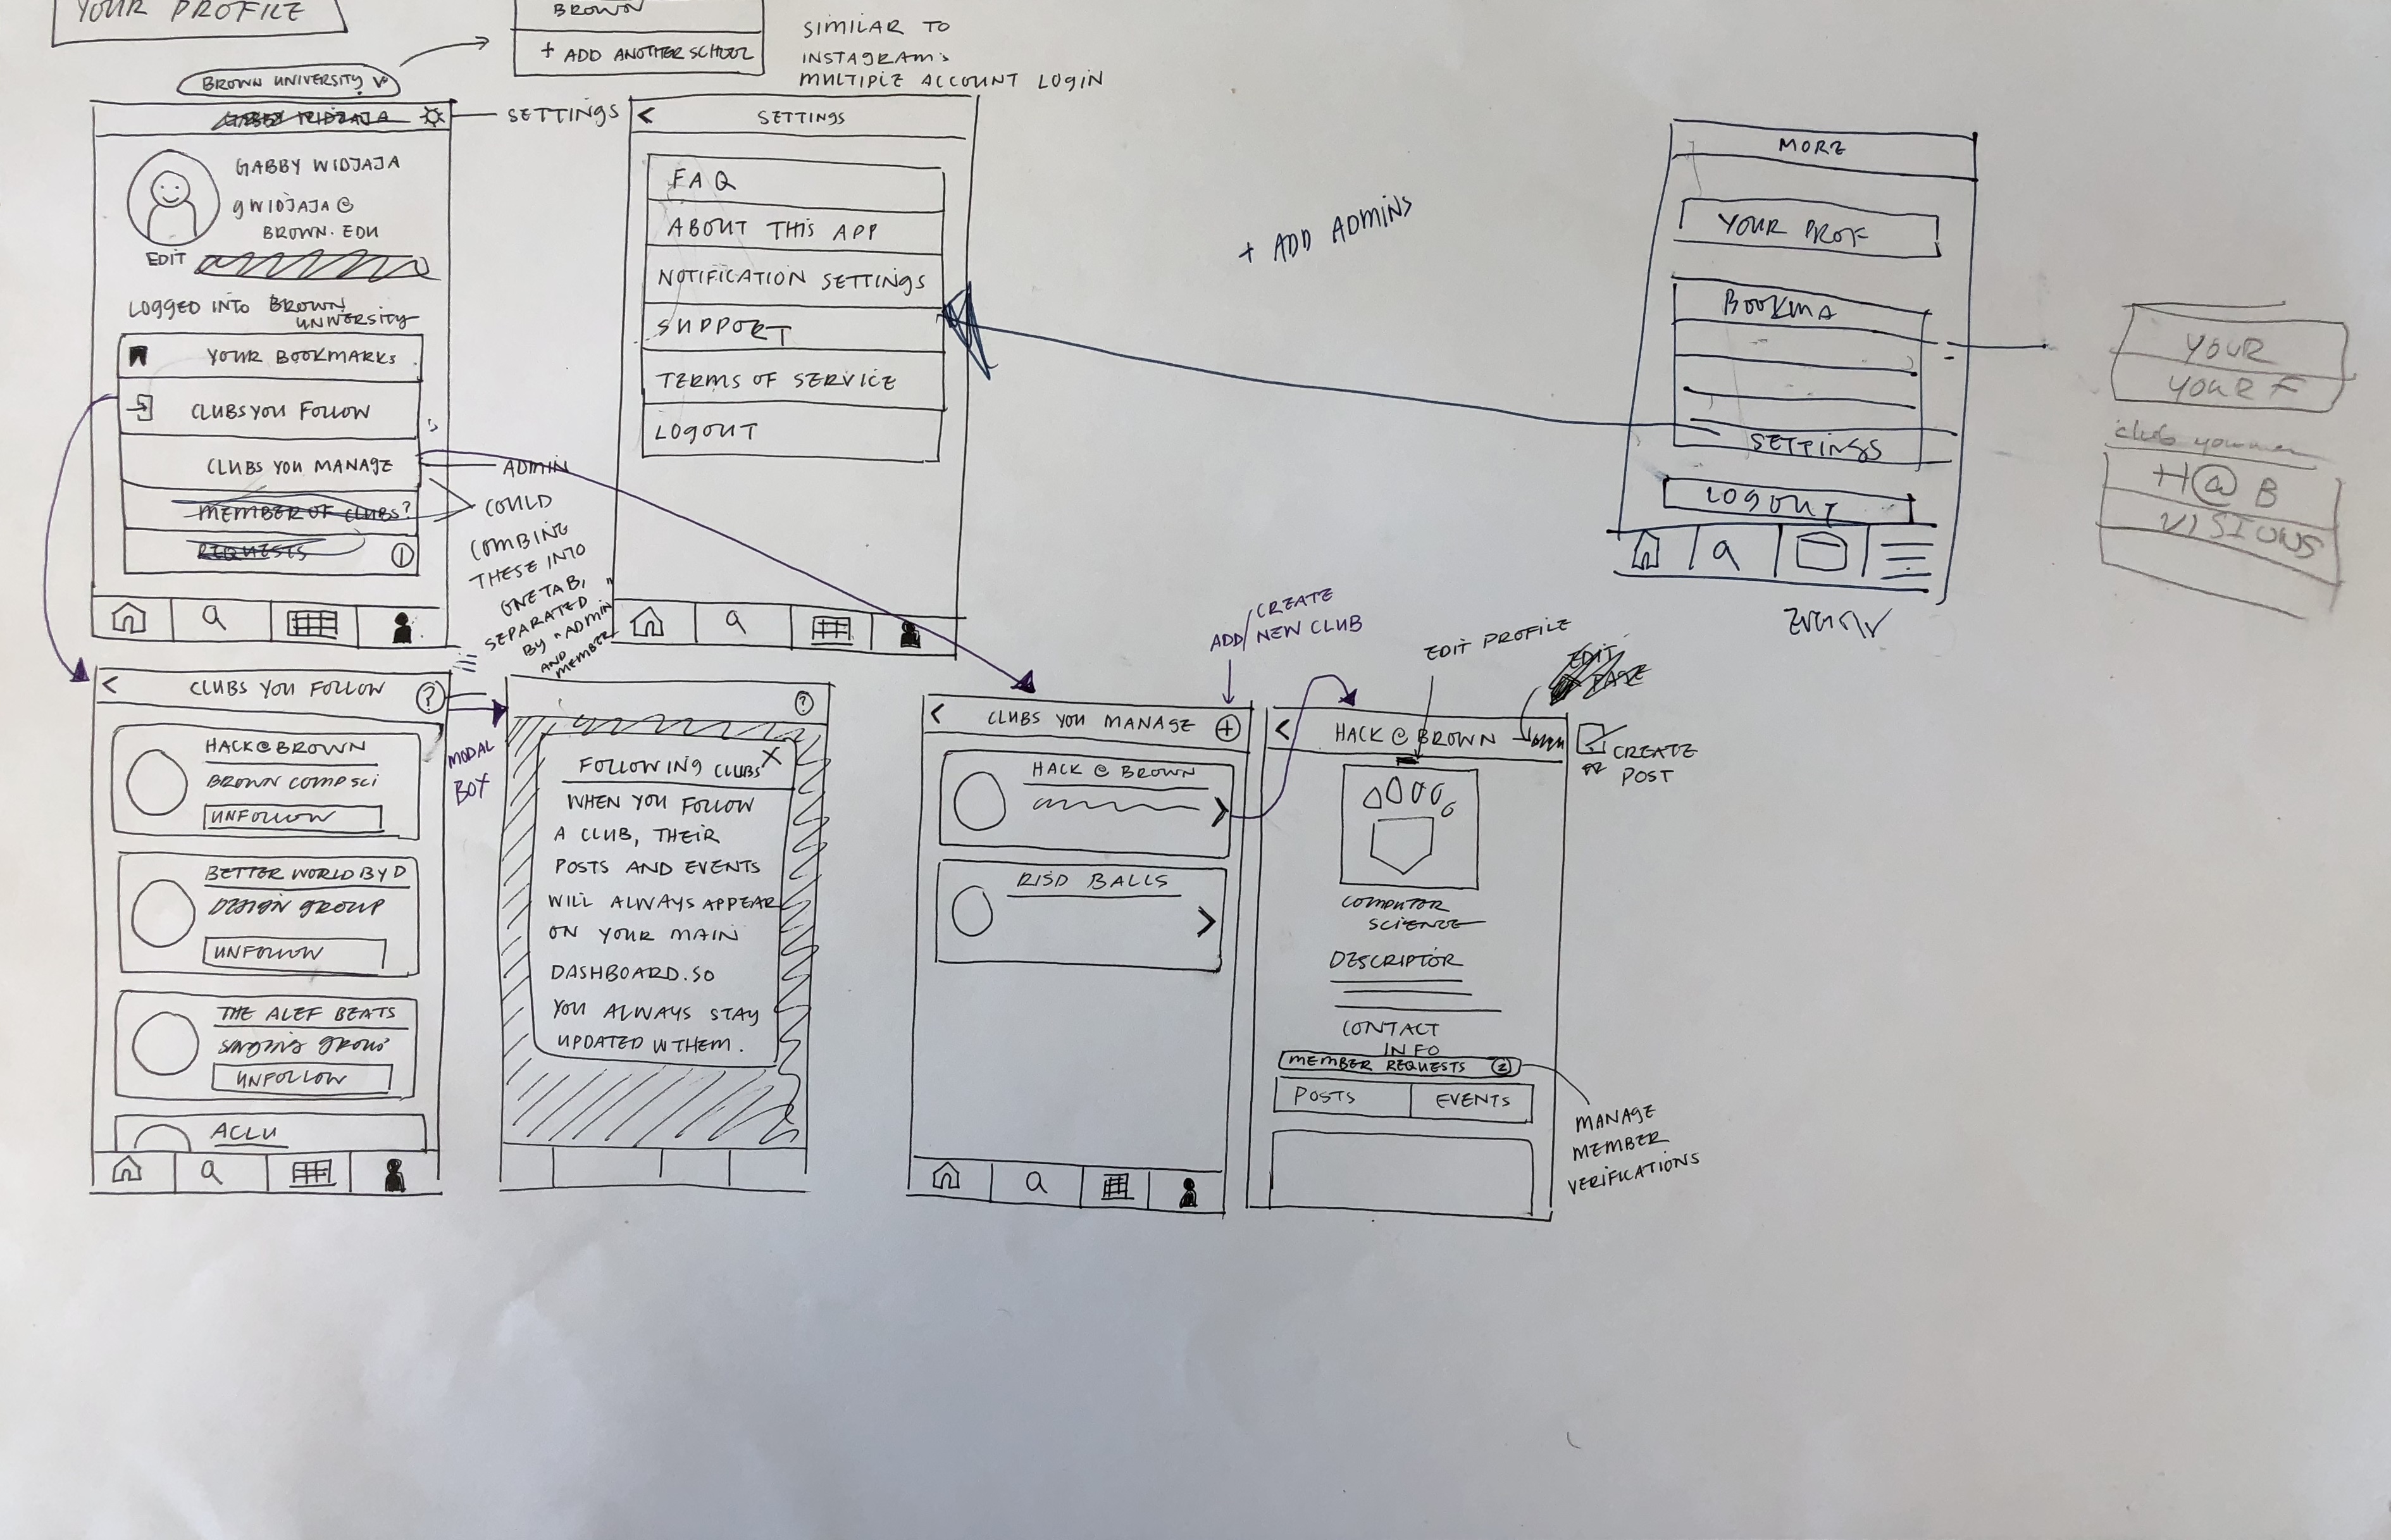 YOUR PROFILE
BROWN
+ ADD ANOTHER SCHOOL
SIMILAR TO
INSTAGRAM'S
MULTIPLE ACCOUNT LOGIN
BROWN UNIVERSITY
GABBY WIDJAJA
SETTINGS
GABBY WIDJAJA
GWIDJAJA@
BROWN.EDU
EDIT
LOGGED INTO BROWN
UNIVERSITY
YOUR BOOKMARKS
CLUBS YOU FOLLOW
CLUBS YOU MANAGE
MEMBER OF CLUBS?
REQUESTS
ADMIN
COULD
COMBING
THESE INTO
ONE TAB,
SEPARATED
BY "ADMIN"
AND
MEMBER
<
SETTINGS
FAQ
ABOUT THIS APP
NOTIFICATION SETTINGS
SUPPORT
TERMS OF SERVICE
LOGOUT
+ ADD ADMINS
MORE
YOUR PROF
BOOKMA
SETTINGS
LOGOUT
YOUR
YOUR F
H@B
VISIONS
<
CLUBS YOU FOLLOW
?
HACK@BROWN
BROWN COMPSCI
UNFOLLOW
BETTER WORLD BY D
DESIGN GROUP
UNFOLLOW
THE ALEF BEATS
SINGING GROUP
UNFOLLOW
ACLU
MODAL
BOX
?
FOLLOWING CLUBS
X
WHEN YOU FOLLOW
A CLUB, THEIR
POSTS AND EVENTS
WILL ALWAYS APPEAR
ON YOUR MAIN
DASHBOARD. SO
YOU ALWAYS STAY
UPDATED W THEM.
ADD/CREATE
NEW CLUB
<
CLUBS YOU MANAGE
+
HACK @ BROWN
RISD BALLS
EDIT PROFILE
EDIT
PAGE
<
HACK @ BROWN
CREATE
POST
COMPUTOR
SCIENCE
DESCRIPTOR
CONTACT
INFO
MEMBER REQUESTS 2
POSTS
EVENTS
MANAGE
MEMBER
VERIFICATIONS